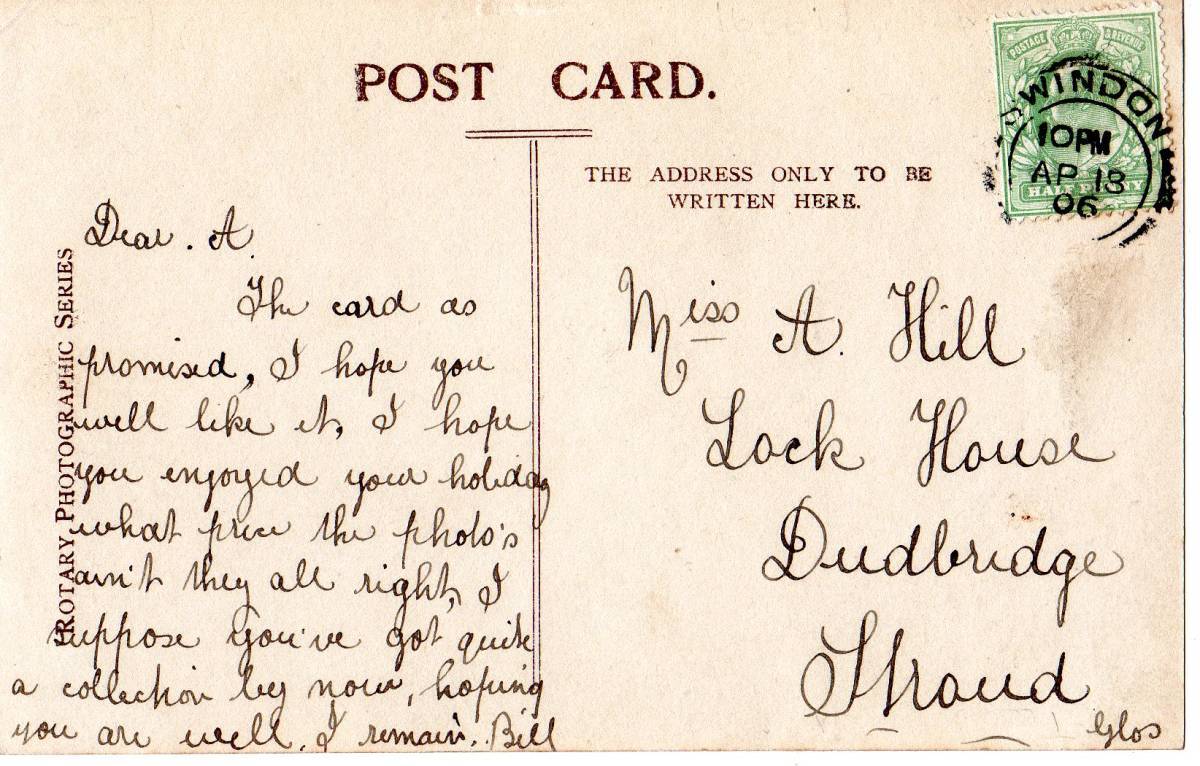 POST CARD.
THE ADDRESS ONLY TO BE
WRITTEN HERE.
POSTAGE & REVENUE
HALF PENNY
SWINDON
10 PM
AP 18
06
ROTARY PHOTOGRAPHIC SERIES
Dear. A.
The card as
promised, I hope you
well like it, I hope
you enjoyed your holiday
what price the photo's
ain't they all right, I
suppose you've got quite
a collection by now, hoping
you are well, I remain. Bill
Miss A. Hill
Lock House
Dudbridge
Stroud
Glos